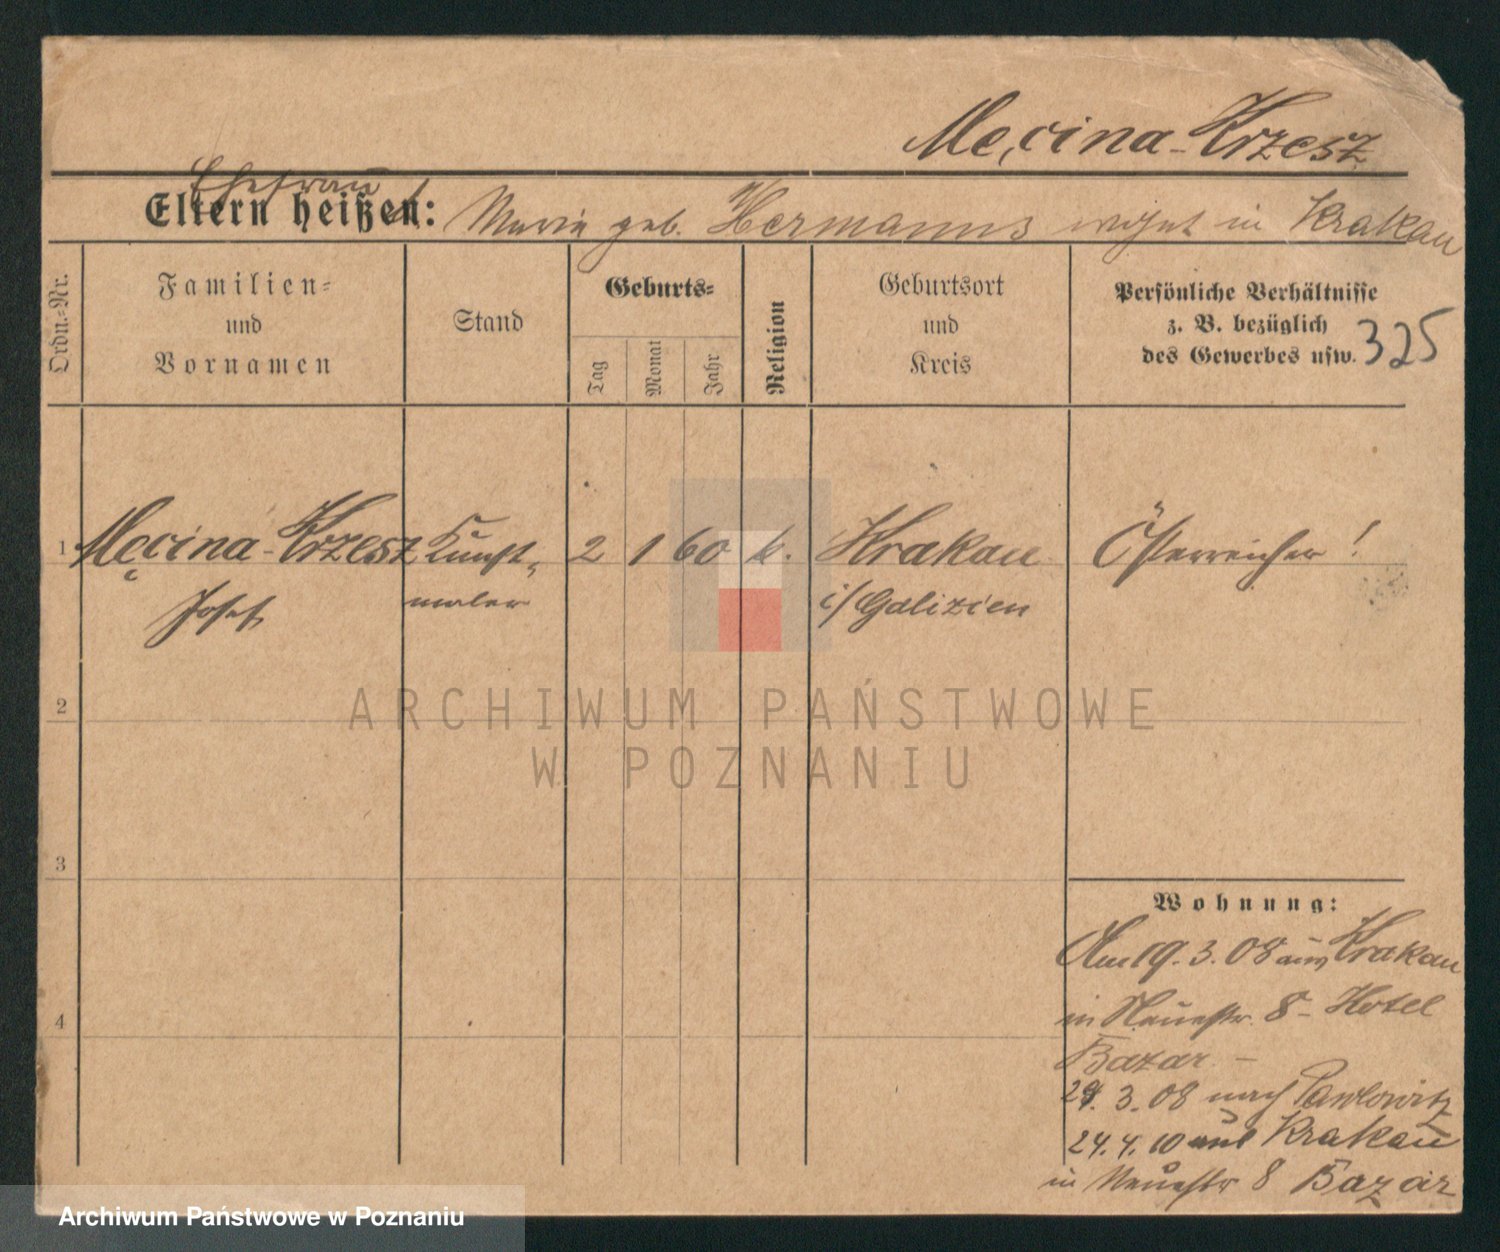 Męcina-Krzesz
Ehefrau
Eltern heißen: Marie geb. Hermanns wohnt in Krakau
Ordn.-Nr.
Familien-
und
Vornamen
Stand
Geburts-
Tag
Monat
Jahr
Religion
Geburtsort
und
Kreis
Persönliche Verhältnisse
z. B. bezüglich
des Gewerbes usw. 325
1 Męcina-Krzesz Kunst- 2 1 60 k. Krakau Österreicher!
Josef maler i/Galizien
2
3
4
Wohnung:
Am 19.3.08 aus Krakau
in Neuestr. 8 - Hotel
Bazar. -
29.3.08 nach Pawlowitz
24.4.10 aus Krakau
in Neuestr 8 Bazar
ARCHIWUM PAŃSTWOWE
W POZNANIU
Archiwum Państwowe w Poznaniu